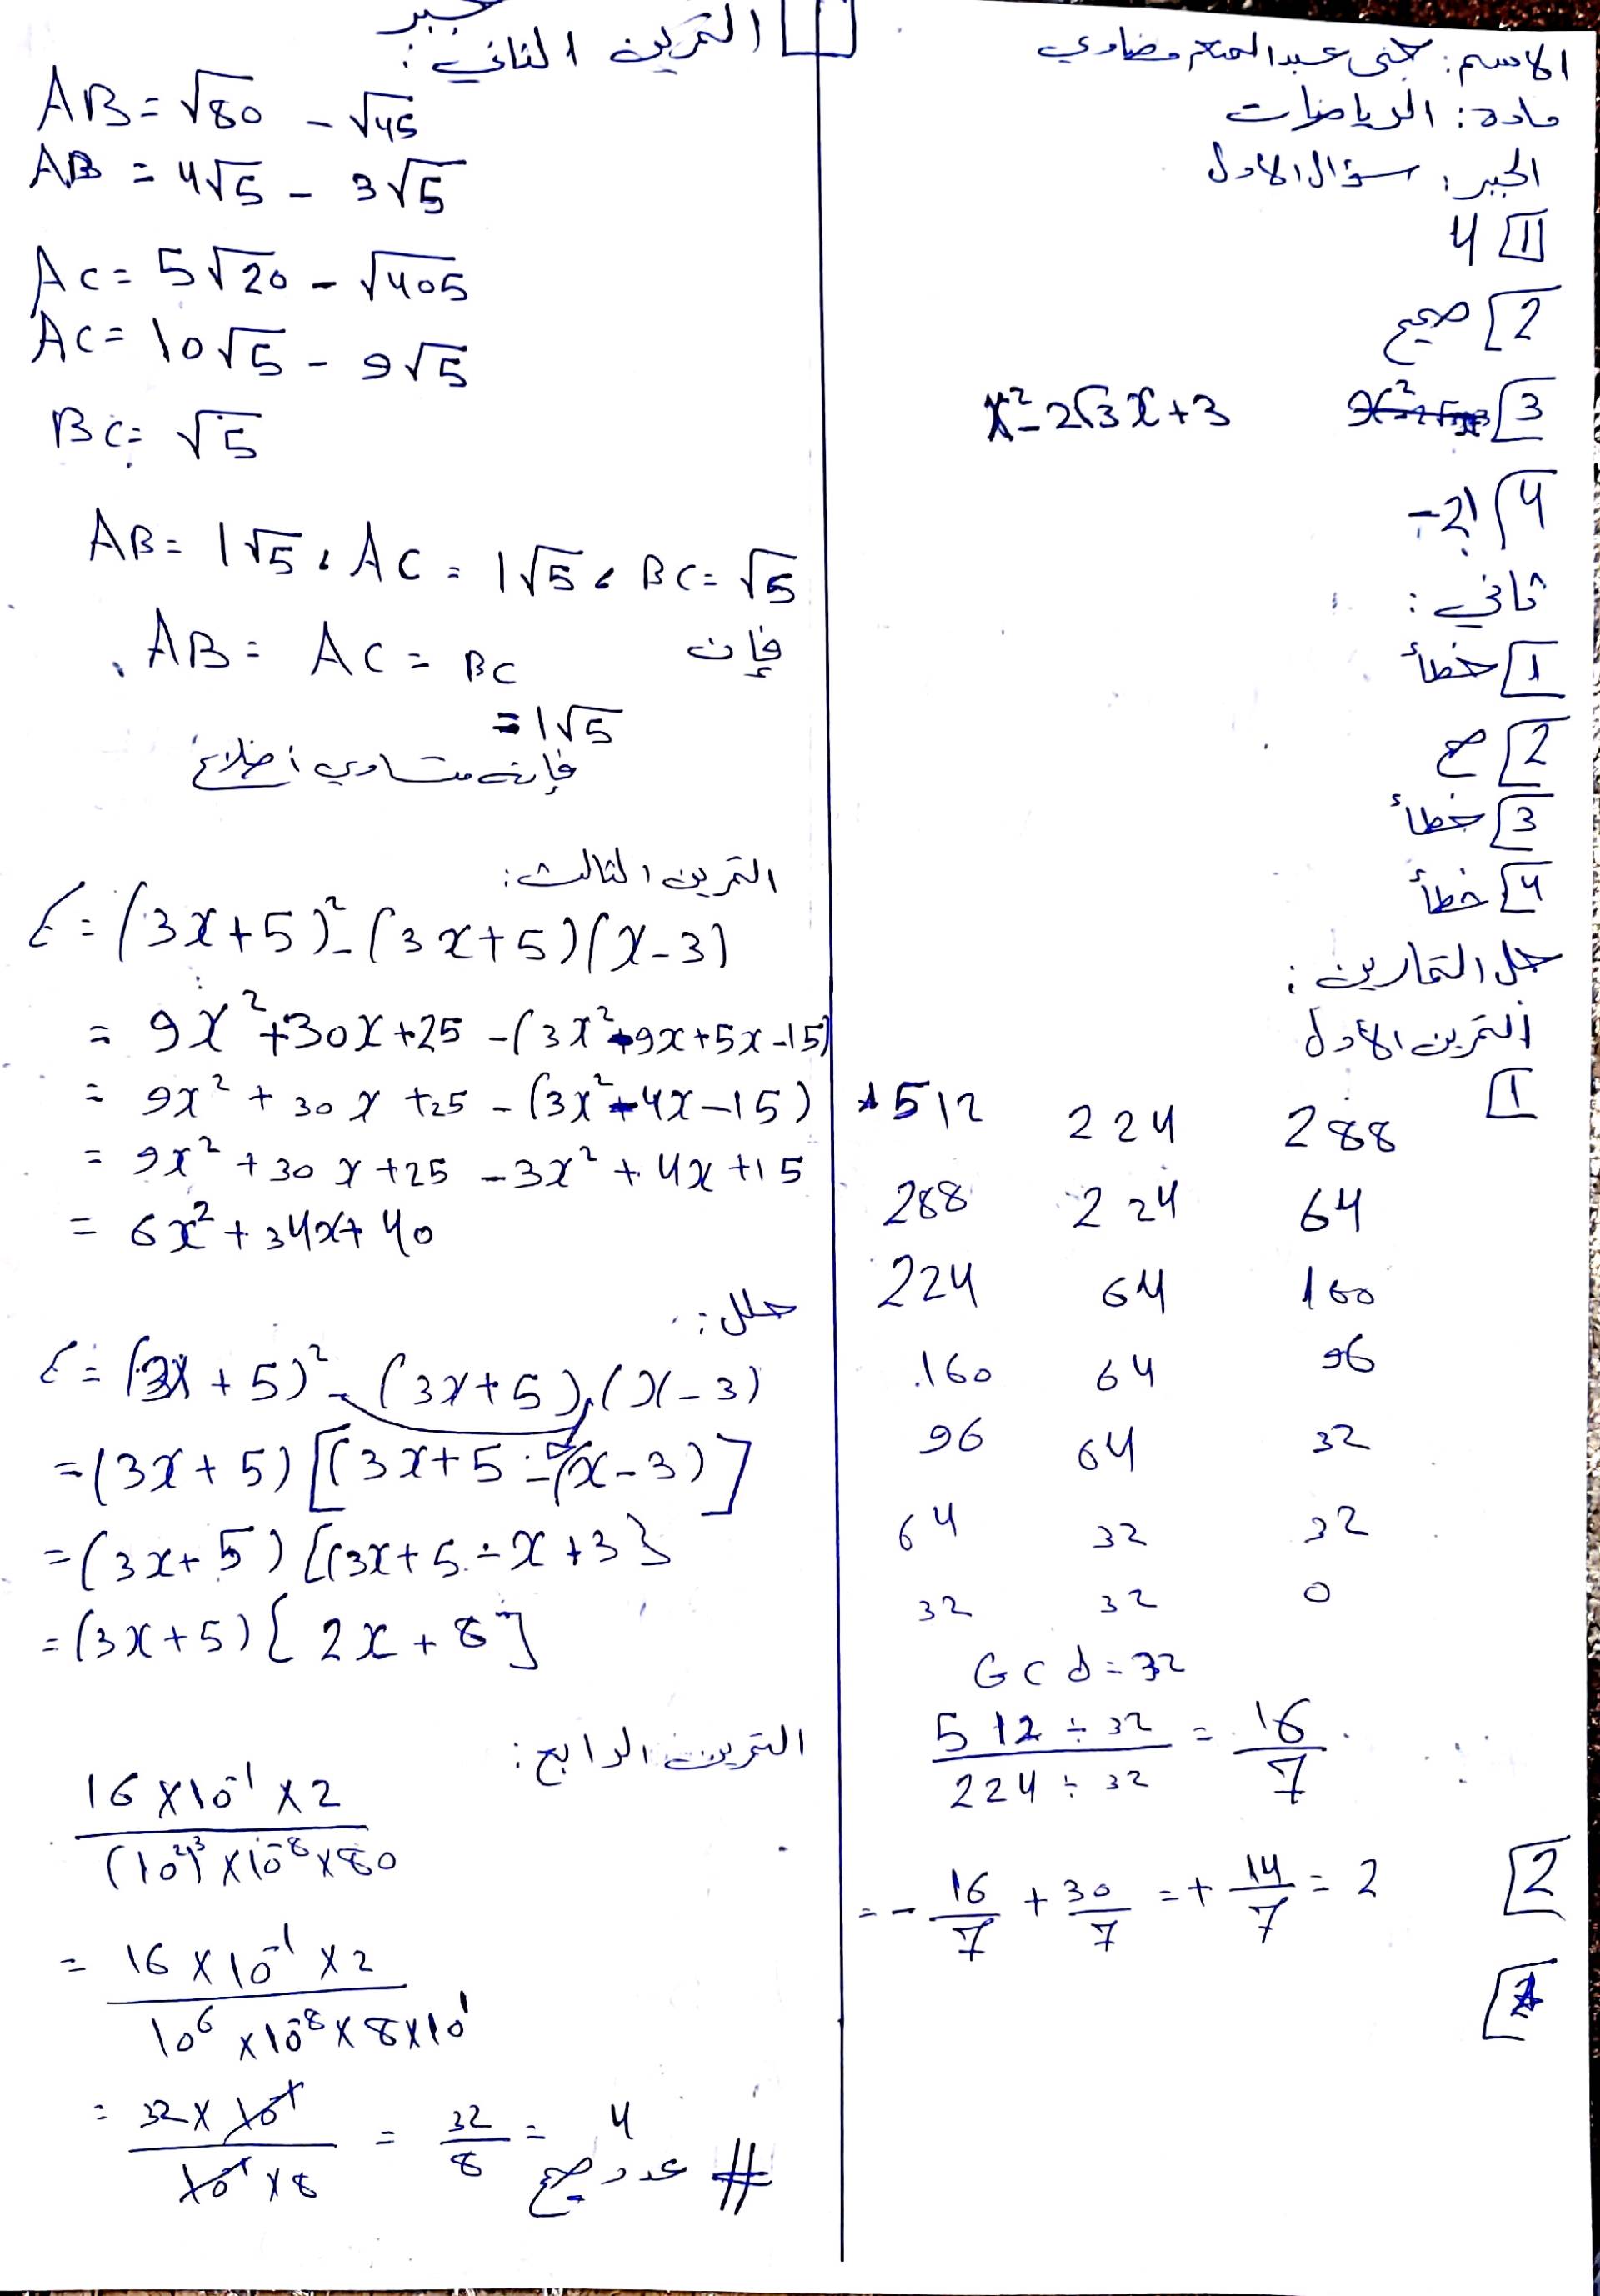 الاسم: جنى عبد المنعم مضاوي
مادة: الرياضات
الجبر: سؤال الاول
1 4
2 صحيح
3 x²-2√3x+3
4 -2
ثاني:
1 خطأ
2 صح
3 خطأ
4 خطأ
حل التمارين:
التمرين الاول
1
512 224 288
288 224 64
224 64 160
160 64 96
96 64 32
64 32 32
32 32 0
Gcd=32
512÷32/224÷32 = 16/7
2 =-16/7 + 30/7 =+ 14/7 = 2
جبر
التمرين الثاني:
AB=√80 - √45
AB = 4√5 - 3√5
AC= 5√20 - √405
AC= 10√5 - 9√5
BC= √5
AB= 1√5 ، AC = 1√5 ، BC= √5
فإن AB= AC = BC
=1√5
فإنه متساوي أضلاع
التمرين الثالث:
E=(3x+5)²-(3x+5)(x-3)
= 9x²+30x+25 -(3x²-9x+5x-15)
= 9x² + 30x +25 - (3x²-4x-15)
= 9x² +30x+25 -3x² + 4x +15
= 6x²+34x+40
حلل:
E=(3x+5)²-(3x+5).(x-3)
=(3x+5)[(3x+5-(x-3)]
=(3x+5)[(3x+5-x+3]
=(3x+5)[2x+8]
التمرين الرابع:
16×10⁻¹×2/(10²)³×10⁻⁸×80
= 16×10⁻¹×2/10⁶×10⁻⁸×8×10¹
= 32×10⁻¹/10⁻¹×8 = 32/8 = 4
عدد صح #